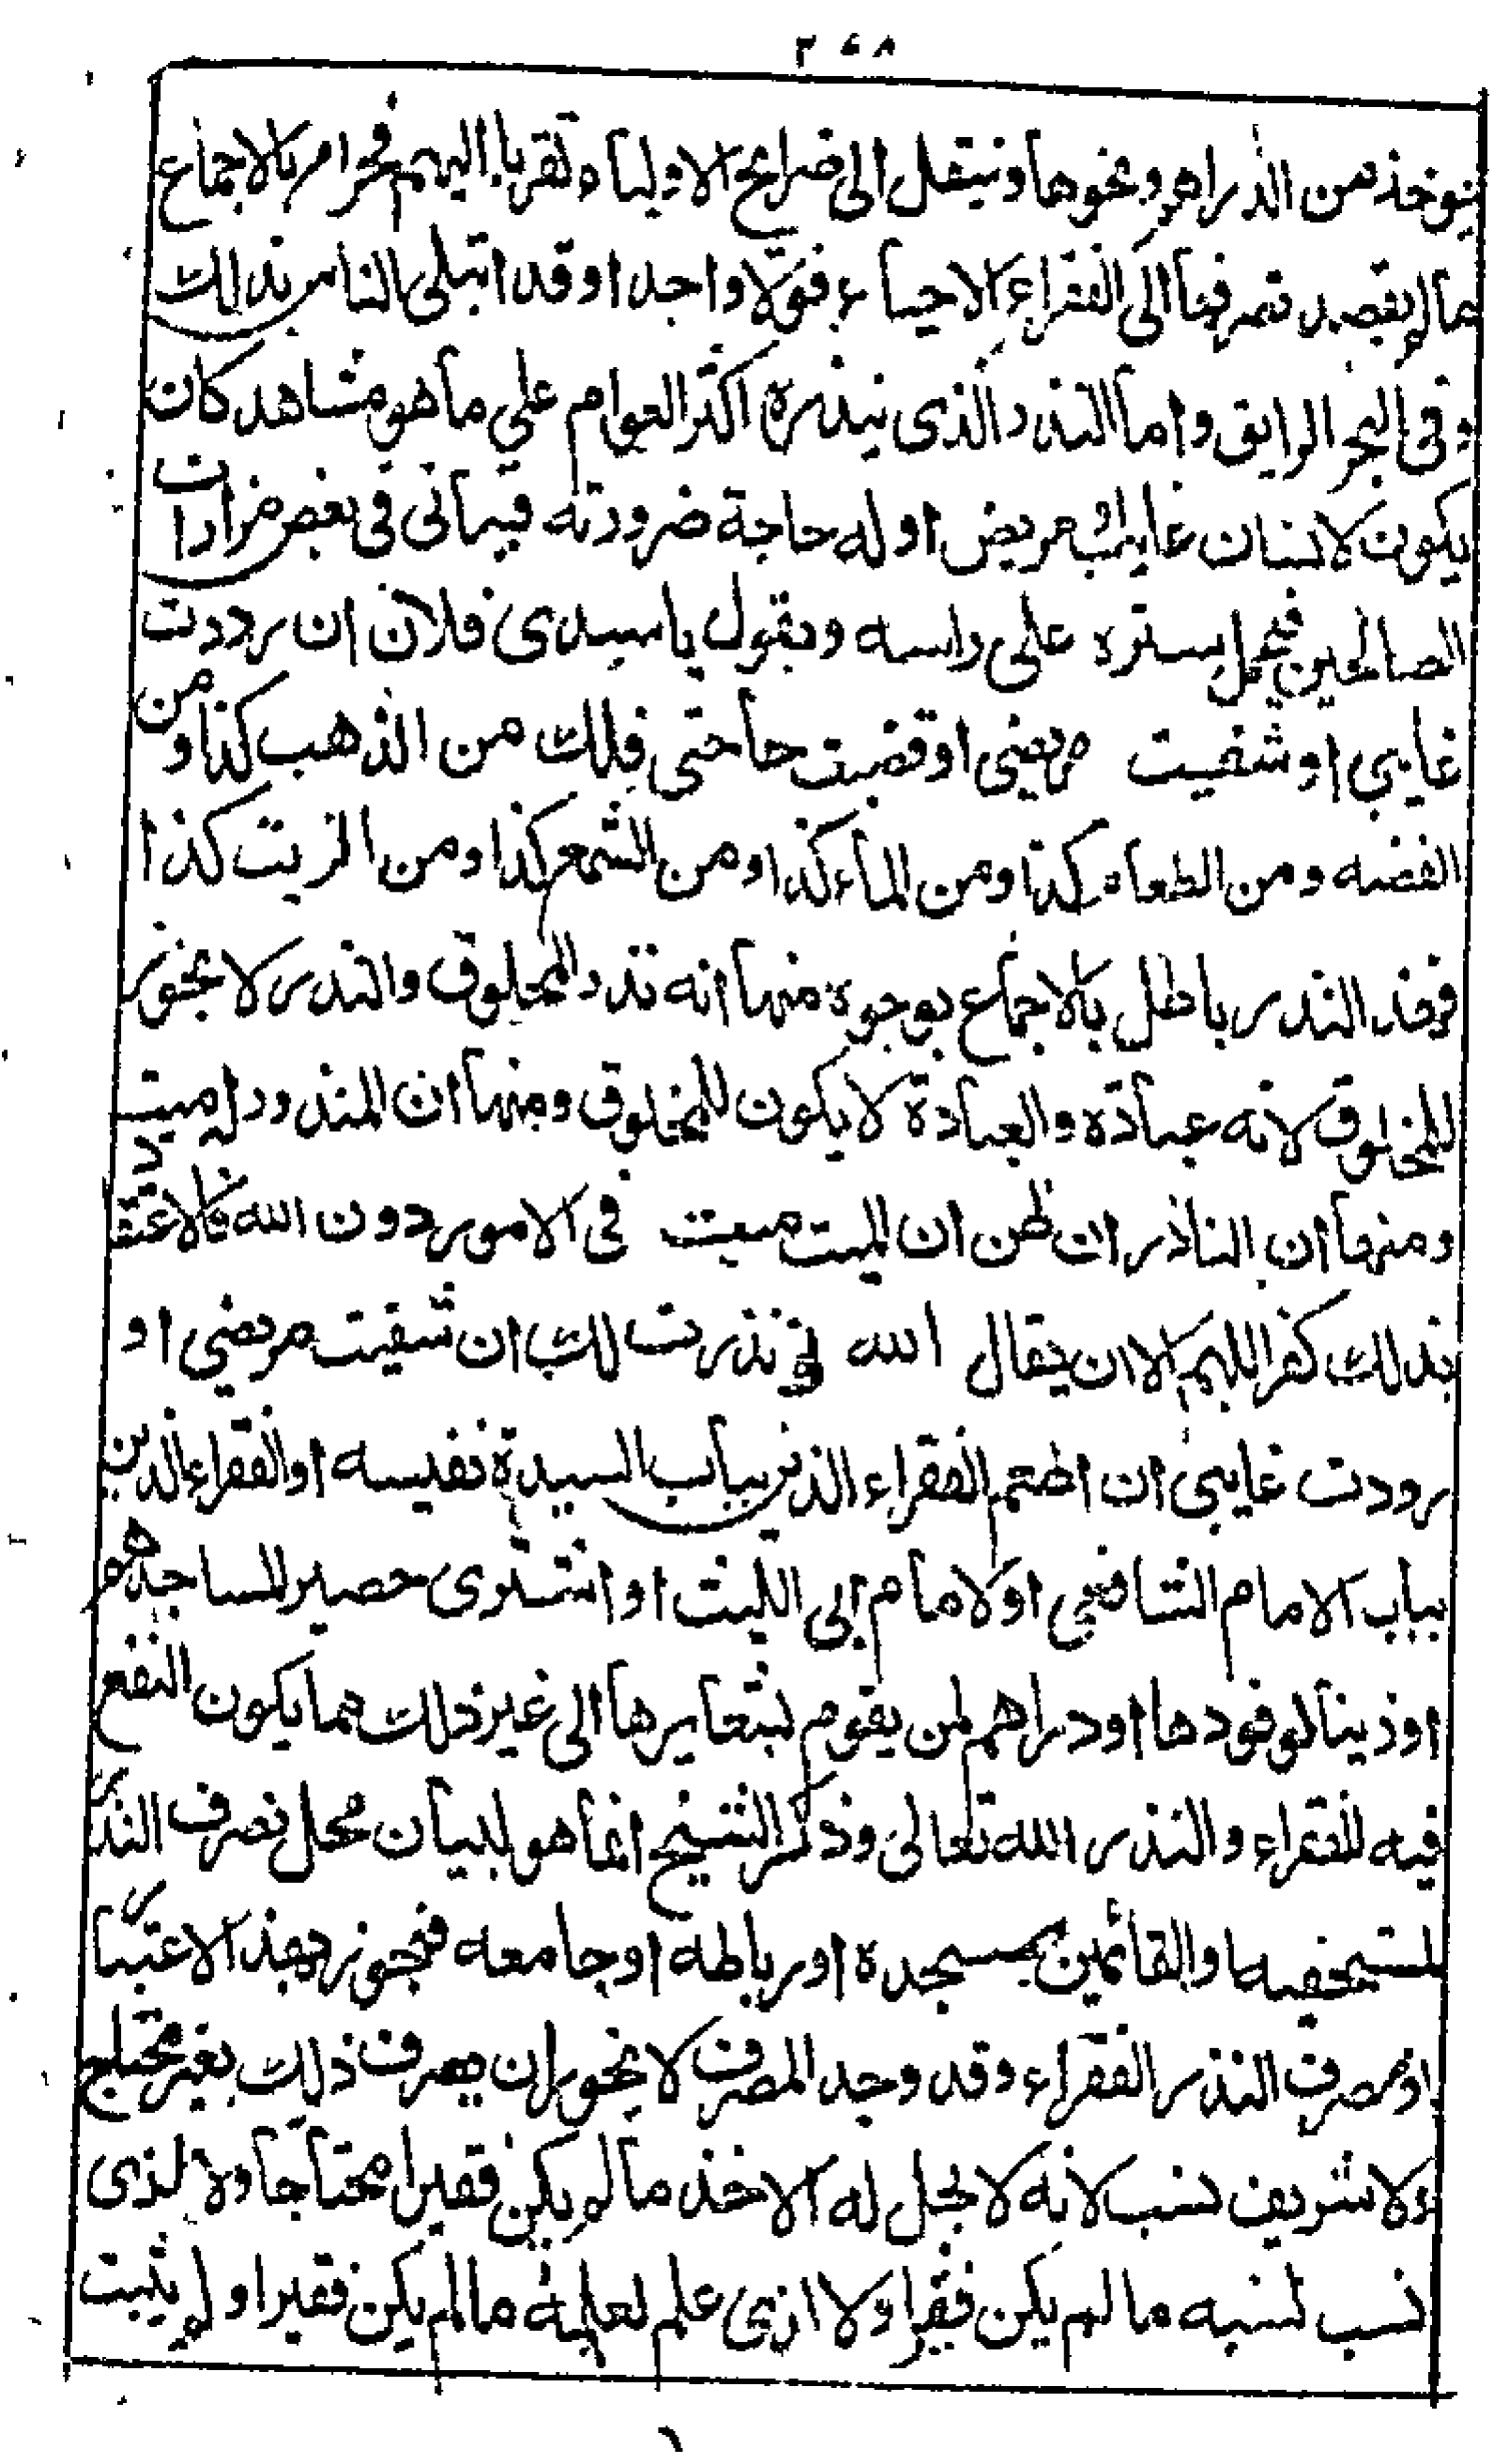 ٢٦٨
فيوخذ من الدراهم ونحوها وينقل الى ضرايح الاولياء تقربا اليهم فحرام بالاجماع
مالم يقصد صرفها الى الفقراء الاحياء قولا واحدا وقد ابتلى الناس بذلك
وفى البحر الرايق واما النذر الذى ينذره اكثر العوام على ما هو مشاهد كان
يكون لانسان غايب او مريض او له حاجة ضرورته فيأتى فى بعض مزارات
الصالحين فيجعل ستره على راسه ويقول يا سيدى فلان ان رددت
غايبى او شفيت مريضى او قضيت حاجتى فلك من الذهب كذا ومن
الفضه ومن الطعام كذا ومن الماء كذا ومن الشمع كذا ومن الزيت كذا
فهذ النذر باطل بالاجماع بوجوه منها انه نذر المخلوق والنذر لا يجوز
للمخلوق لانه عبادة والعبادة لا يكون للمخلوق ومنها ان المنذور له ميت
ومنها ان الناذر ان ظن ان الميت ميت فى الامور دون الله فالاعتقاد
بذلك كفر اللهم الا ان يقال الله انى نذرت لك ان شفيت مريضى او
رودت غايبى ان اطعم الفقراء الذين بباب السيدة نفيسه او الفقراء الذين
بباب الامام الشافعى او لامام ابى الليث او اشترى حصير المساجدهم
او زيتا لوقودها او دراهم لمن يقوم بشعايرها الى غير ذلك مما يكون النفع
فيه للفقراء والنذر الله تعالى وذكر الشيخ انما هو لبيان محل تصرف النذر
لمستحقيه والقائمين بمسجده او رباطه او جامعه فيجوز بهذ الاعتبار
اذ مصرف النذر الفقراء وقد وجد المصرف لا يجوز ان يصرف ذلك بغير محتاج
ولا شريف نسب لانه لا يحل له الاخذ مالم يكن فقيرا محتاجا ولا لذى
نسب لنسبه ما لم يكن فقيرا ولا ازى علم لعلمه مالم يكن فقيرا ولم يثبت